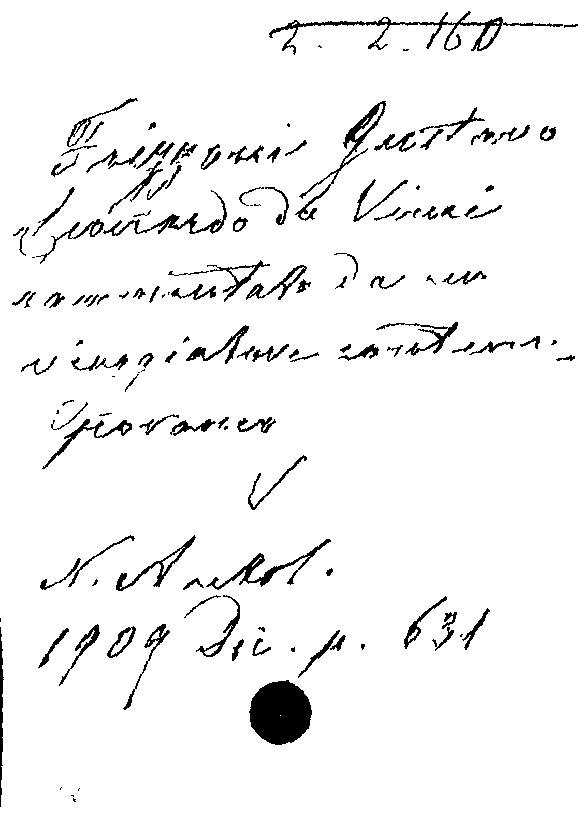 2. 2. 160
Frizzoni Gustavo
Leonardo da Vinci
commentato da un
viaggiatore contem-
poraneo
N. Antol.
1909 Dic. p. 631